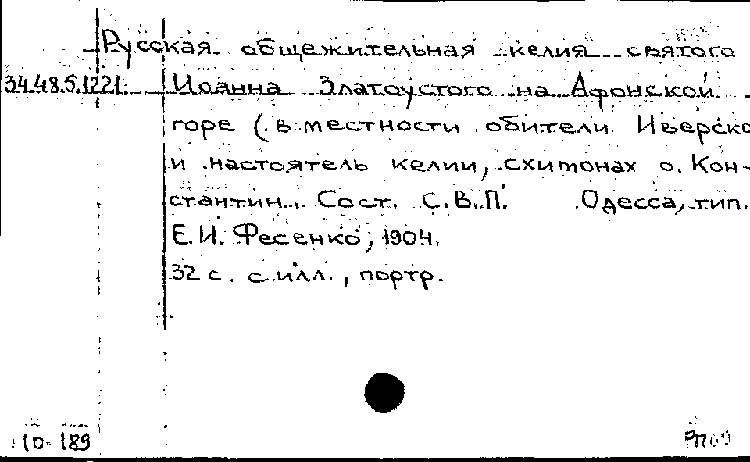 Русская общежительная келия святого
34.48.5.1221. Иоанна Златоустого на Афонской
горе (в местности обители Иверско
и настоятель келии, схимонах о. Кон-
стантин. Сост. С.В.П. Одесса, тип.
Е.И. Фесенко, 1904.
32 с. с илл., портр.
10-189